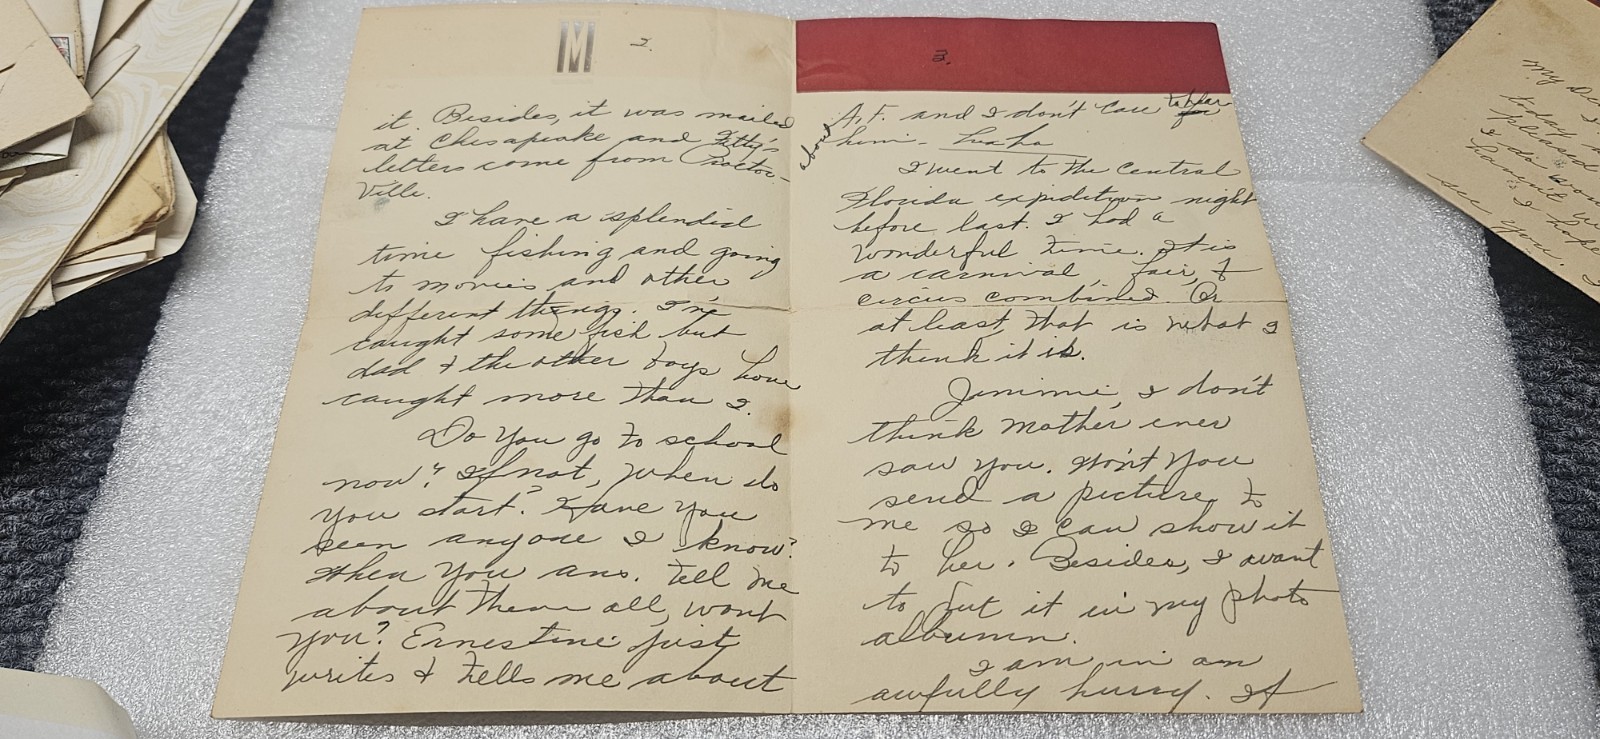 M 2.
it. Besides, it was mailed
at Chesapeake and Itty's
letters come from Proctor-
ville.
I have a splendid
time fishing and going
to movies and other
different things. I've
caught some fish but
dad & the other boys have
caught more than I.
Do you go to school
now? If not, when do
you start? Have you
seen anyone I know?
When you ans. tell me
about them all, wont
you? Ernestine just
writes & tells me about
3.
A.F. and I don't care to hear
about him - 
I went to the Central
Florida expidition night
before last. I had a
wonderful time. It is
a carnival, fair, &
circus combined. Or
at least, that is what I
think it is.
Jimmie, I don't
think mother ever
saw you. Won't you
send a picture to
me so I can show it
to her. Besides, I want
to put it in my photo
albumn.
I am in am
awfully hurry. If
My
today
pleased
I do
haven't
I hope
see you.